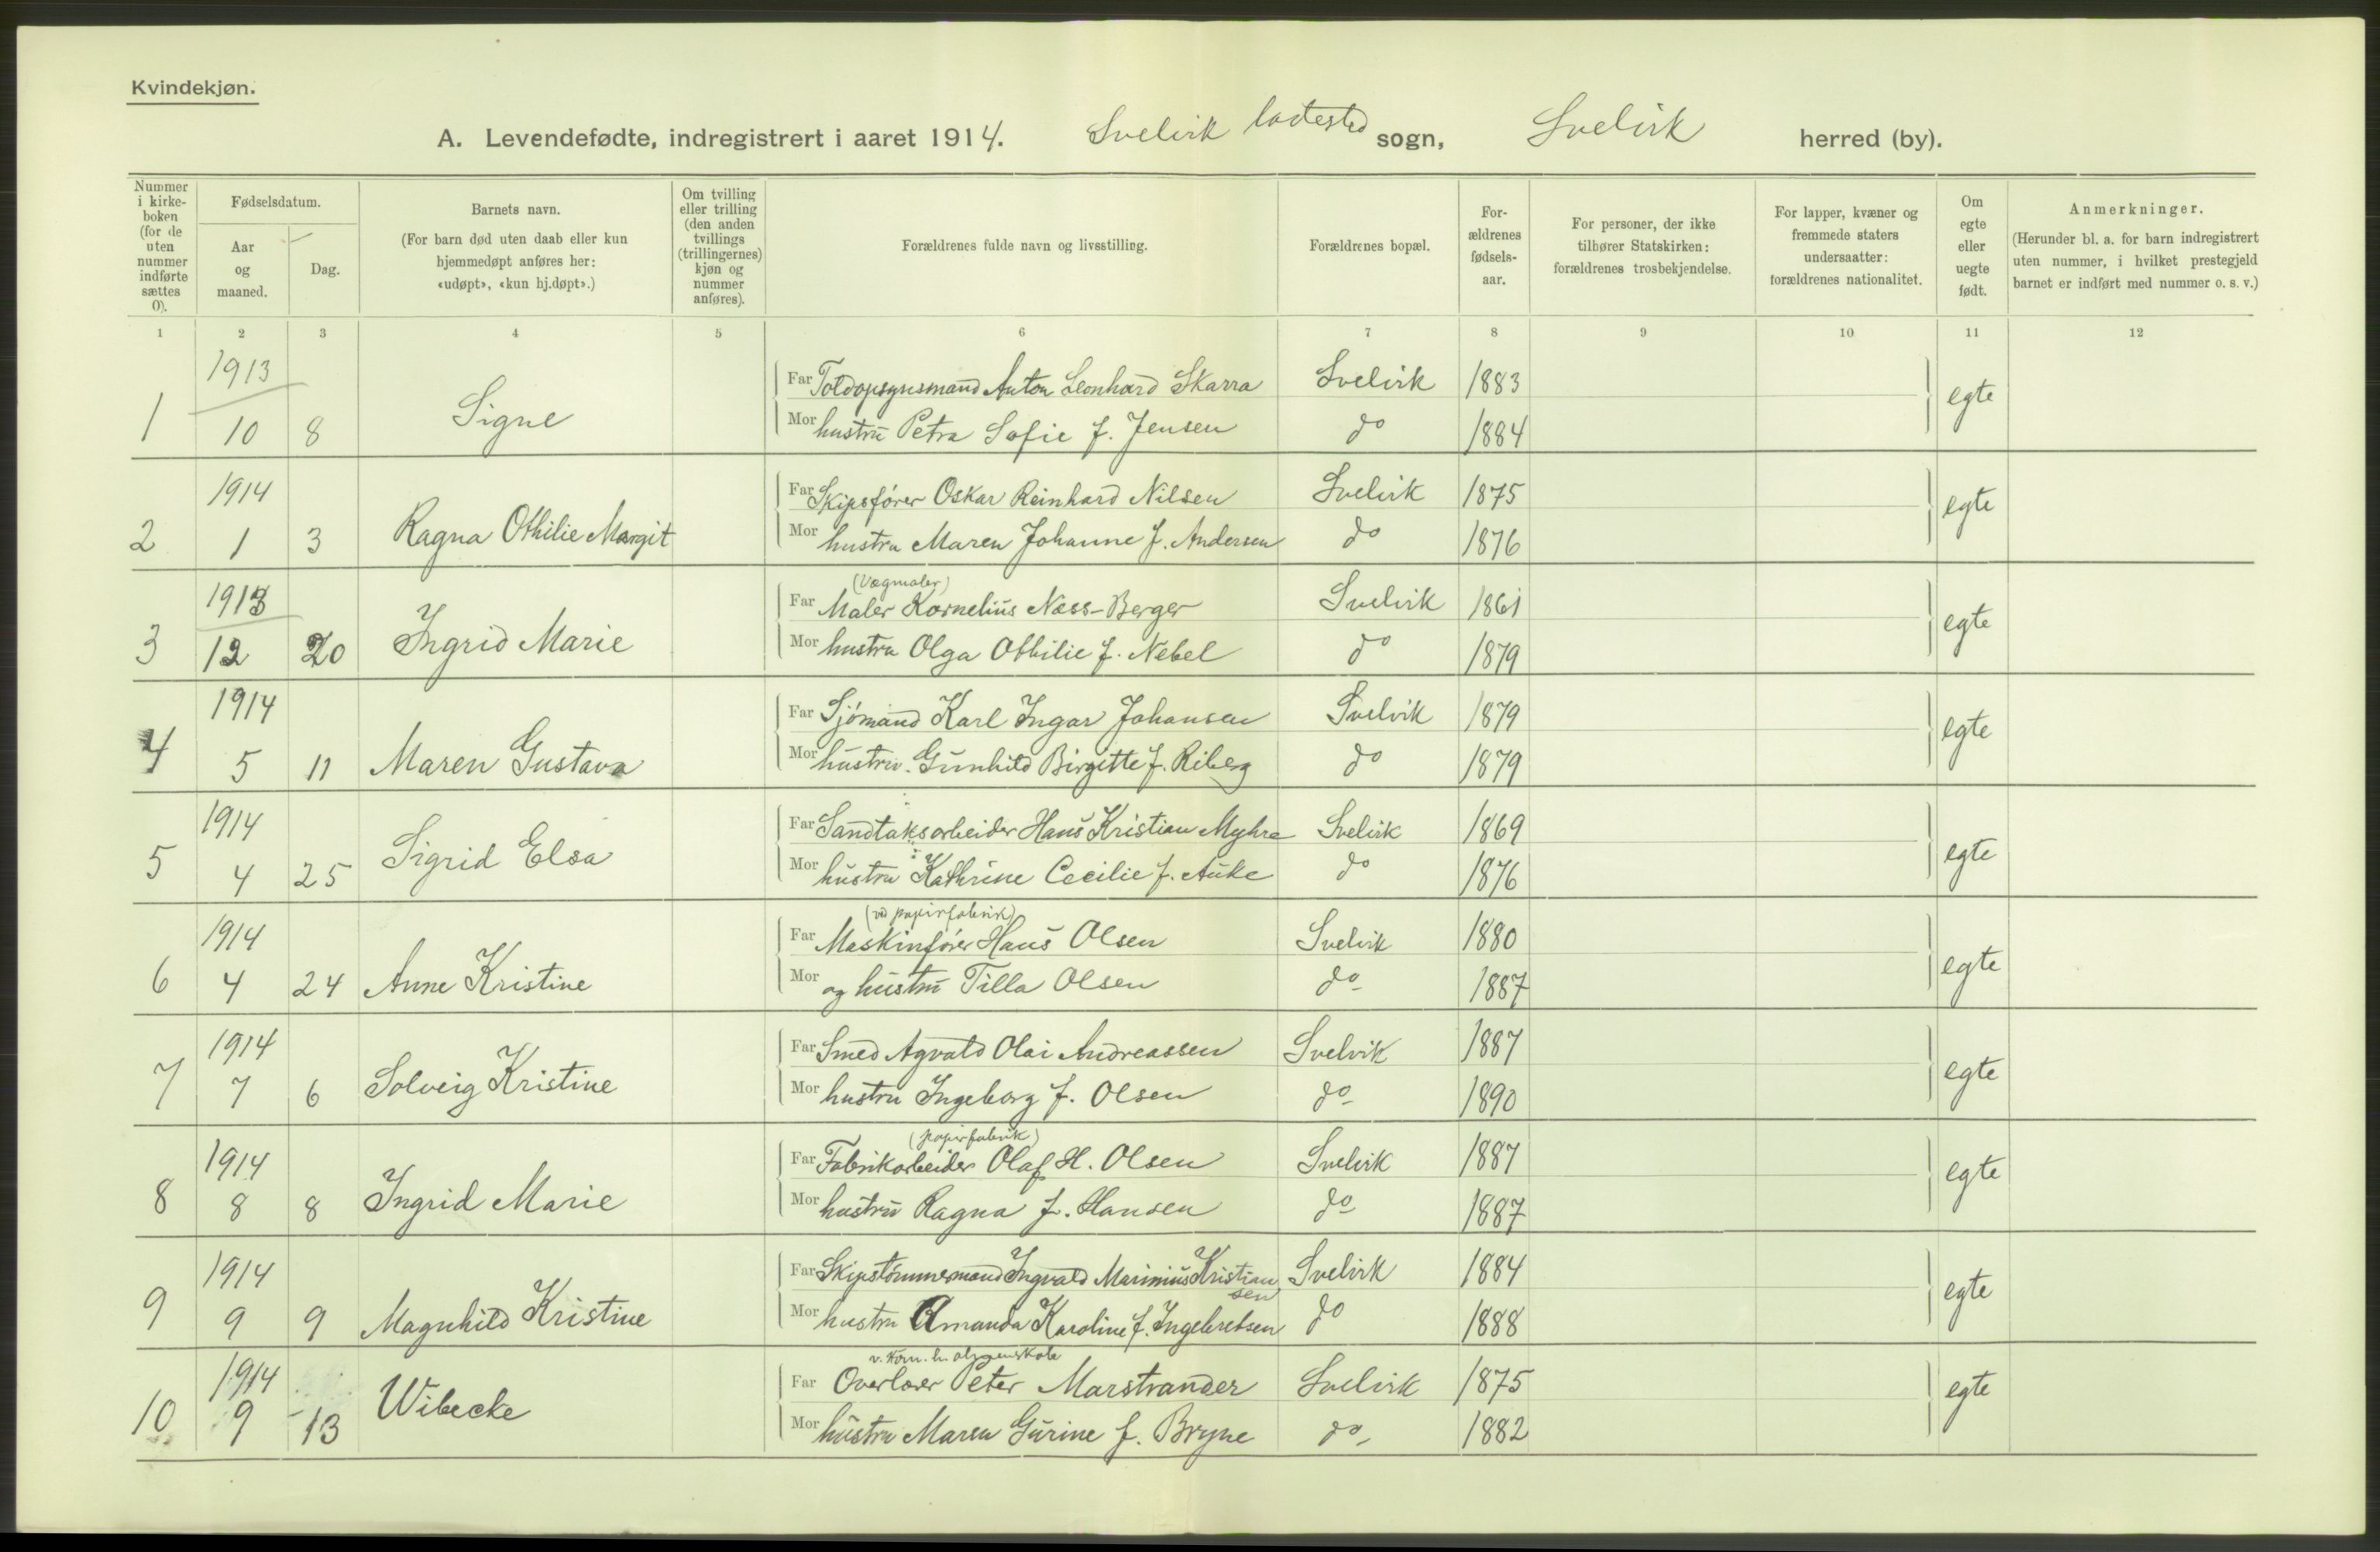 Kvindekjøn.
A. Levendefødte, indregistrert i aaret 1914. Svelvik ladested sogn, Svelvik herred (by).
Nummer i kirke-boken (for de uten nummer indførte sættes 0).
Fødselsdatum.
Aar og maaned.
Dag.
Barnets navn.
(For barn død uten daab eller kun hjemmedøpt anføres her: «udøpt», «kun hj.døpt».)
Om tvilling eller trilling (den anden tvillings (trillingernes) kjøn og nummer anføres).
Forældrenes fulde navn og livsstilling.
Forældrenes bopæl.
For-ældrenes fødsels-aar.
For personer, der ikke tilhører Statskirken: forældrenes trosbekjendelse.
For lapper, kvæner og fremmede staters undersaatter: forældrenes nationalitet.
Om egte eller uegte født.
Anmerkninger.
(Herunder bl. a. for barn indregistrert uten nummer, i hvilket prestegjeld barnet er indført med nummer o. s. v.)
1 2 3 4 5 6 7 8 9 10 11 12
1913
Far Toldopsynsmand Anton Leonhard Skarra Svelvik 1883
1 10 8 Signe egte
Mor hustru Petra Sofie f. Jensen do 1884
1914
Far Skipsfører Oskar Reinhard Nilsen Svelvik 1875
2 1 3 Ragna Othilie Margit egte
Mor hustru Maren Johanne f. Andersen do 1876
1913
(Vægmaler)
Far Maler Kornelius Næss-Berger Svelvik 1861
3 12 20 Ingrid Marie egte
Mor hustru Olga Othilie f. Nebel do 1879
1914
Far Sjömand Karl Ingar Johansen Svelvik 1879
4 5 11 Maren Gustava egte
Mor hustru Gunhild Birgitte f. Riberg do 1879
1914
Far Sandtaksarbeider Hans Kristian Myhre Svelvik 1869
5 4 25 Sigrid Elsa egte
Mor hustru Kathrine Cecilie f. Auke do 1876
1914
(ved papirfabrik)
Far Maskinfører Hans Olsen Svelvik 1880
6 4 24 Anne Kristine egte
Mor og hustru Tilla Olsen do 1887
1914
Far Smed Agvald Olai Andreassen Svelvik 1887
7 7 6 Solveig Kristine egte
Mor hustru Ingeborg f. Olsen do 1890
1914
(papirfabrik)
Far Fabrikarbeider Olaf H. Olsen Svelvik 1887
8 8 8 Ingrid Marie egte
Mor hustru Ragna f. Hansen do 1887
1914
Far Skipstömmermand Ingvald Marinius Kristiansen Svelvik 1884
9 9 9 Magnhild Kristine egte
Mor hustru Amanda Karoline f. Ingebretsen do 1888
1914
Far Overlærer Peter Marstrander Svelvik 1875
10 9 13 Wibecke egte
Mor hustru Maren Gurine f. Bryne do 1882